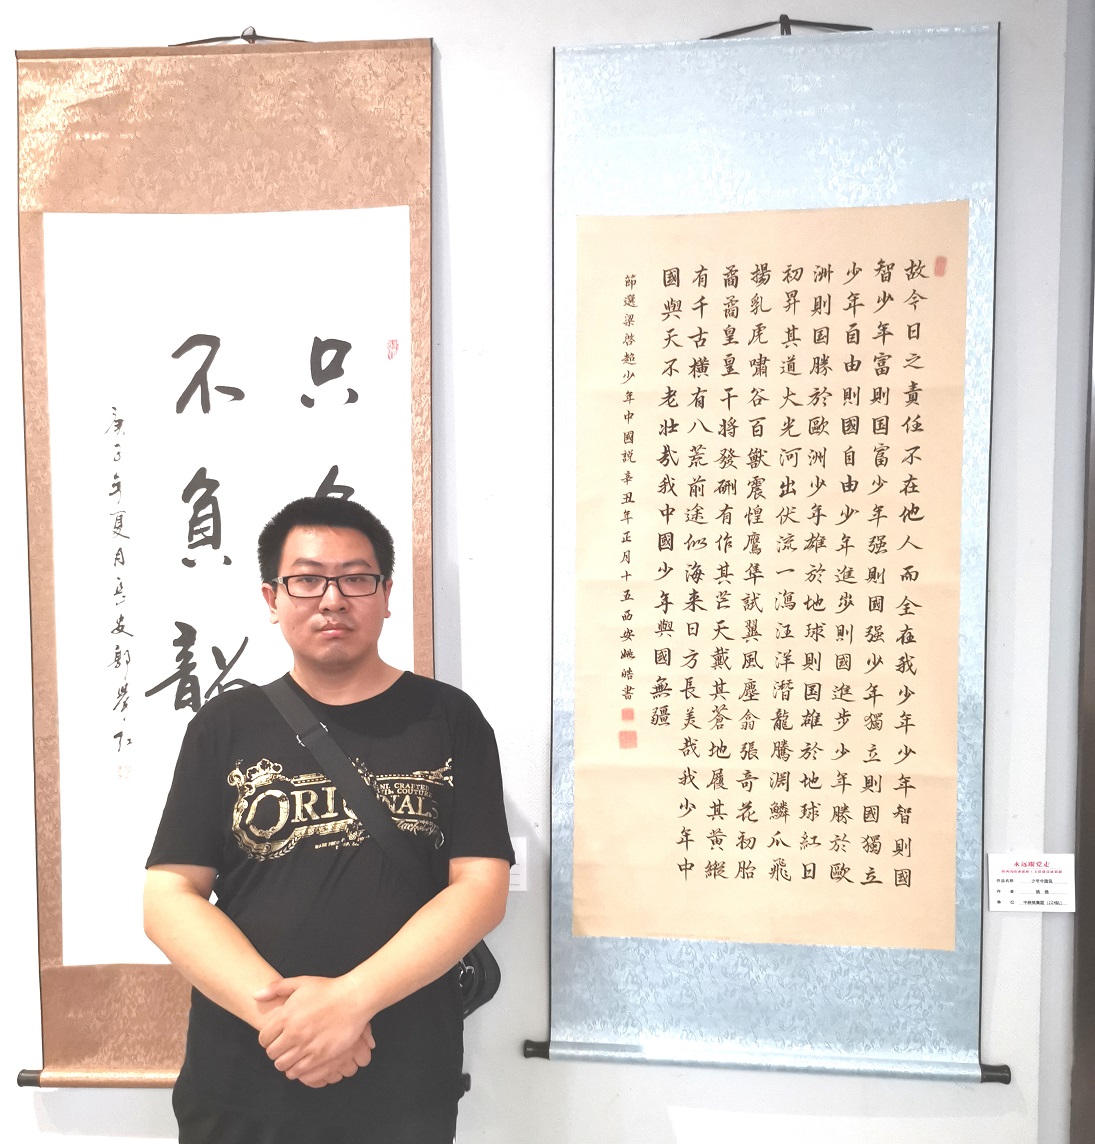 只
不負韶
庚子年夏月
故今日之責任不在他人而全在我少年少年智則國
智少年富則国富少年强則國强少年獨立則國獨立
少年自由則國自由少年進步則國進步少年勝於歐
洲則国勝於歐洲少年雄於地球則国雄於地球紅日
初昇其道大光河出伏流一瀉汪洋潛龍騰渊鱗爪飛
揚乳虎嘯谷百獸震惶鷹隼試翼風塵翕張奇花初胎
矞矞皇皇干將發硎有作其芒天戴其蒼地履其黄縱
有千古橫有八荒前途似海来日方長美哉我少年中
國與天不老壯哉我中國少年與國無疆
節選梁啓超少年中國説辛丑年正月十五西安姚皓書
永远跟党走
作品名称 少年中国说
作者 姚皓
单位
CRAFTED
COUTURE
ORIGINALS